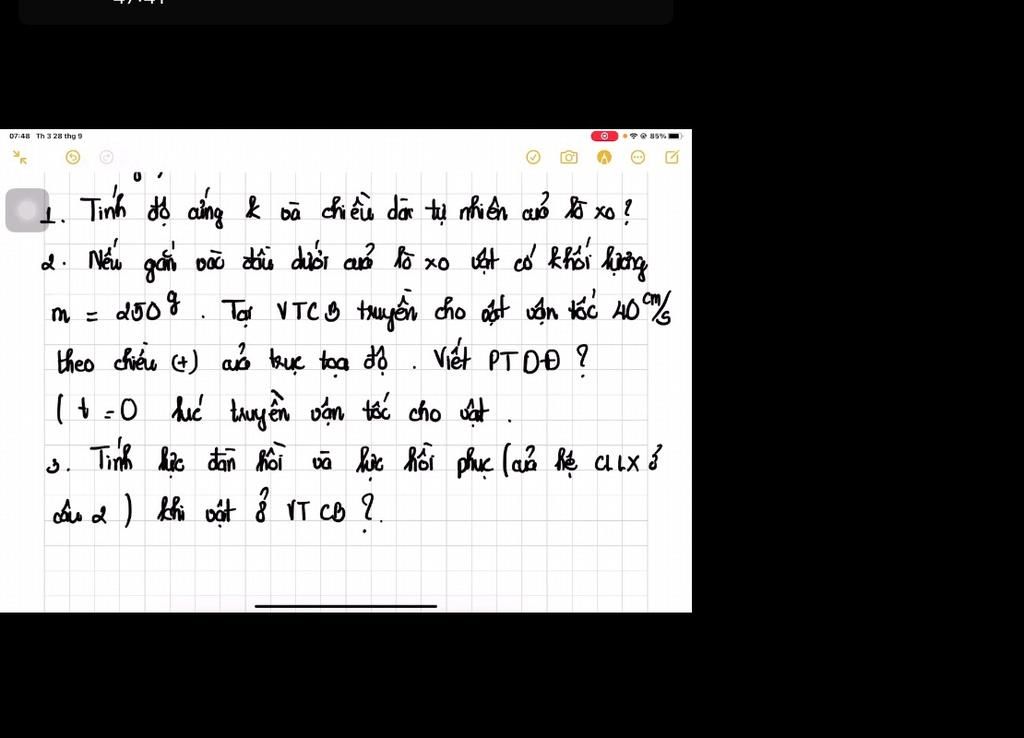 07:48 Th 3 28 thg 9
85%
1. Tính độ cứng k và chiều dài tự nhiên của lò xo?
2. Nếu gắn vào đầu dưới của lò xo vật có khối lượng
m = 250g. Tại VTCB truyền cho vật vận tốc 40 cm/s
theo chiều (+) của trục toạ độ. Viết PTDĐ?
(t = 0 lúc truyền vận tốc cho vật.
3. Tính lực đàn hồi và lực hồi phục (của hệ CLLX ở
câu 2) khi vật ở VTCB?